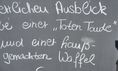 erlichen Ausblick
be einer „Toten Tante"
und einer hauß-
gemachten Waffel